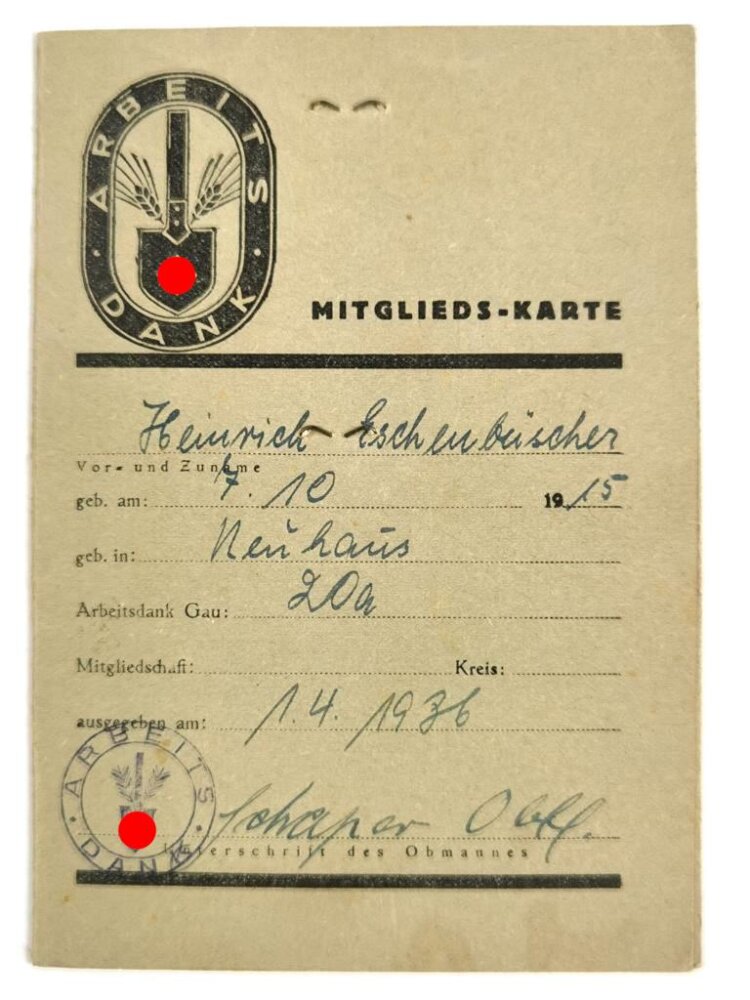 ARBEITS
DANK
MITGLIEDS-KARTE
Heinrich Eschenbüscher
Vor- und Zuname
geb. am: 7. 10 1915
geb. in: Neuhaus
Arbeitsdank Gau: 20a
Mitgliedschaft: Kreis:
ausgegeben am: 1.4. 1936
ARBEITS
DANK
Schaper
Unterschrift des Obmannes